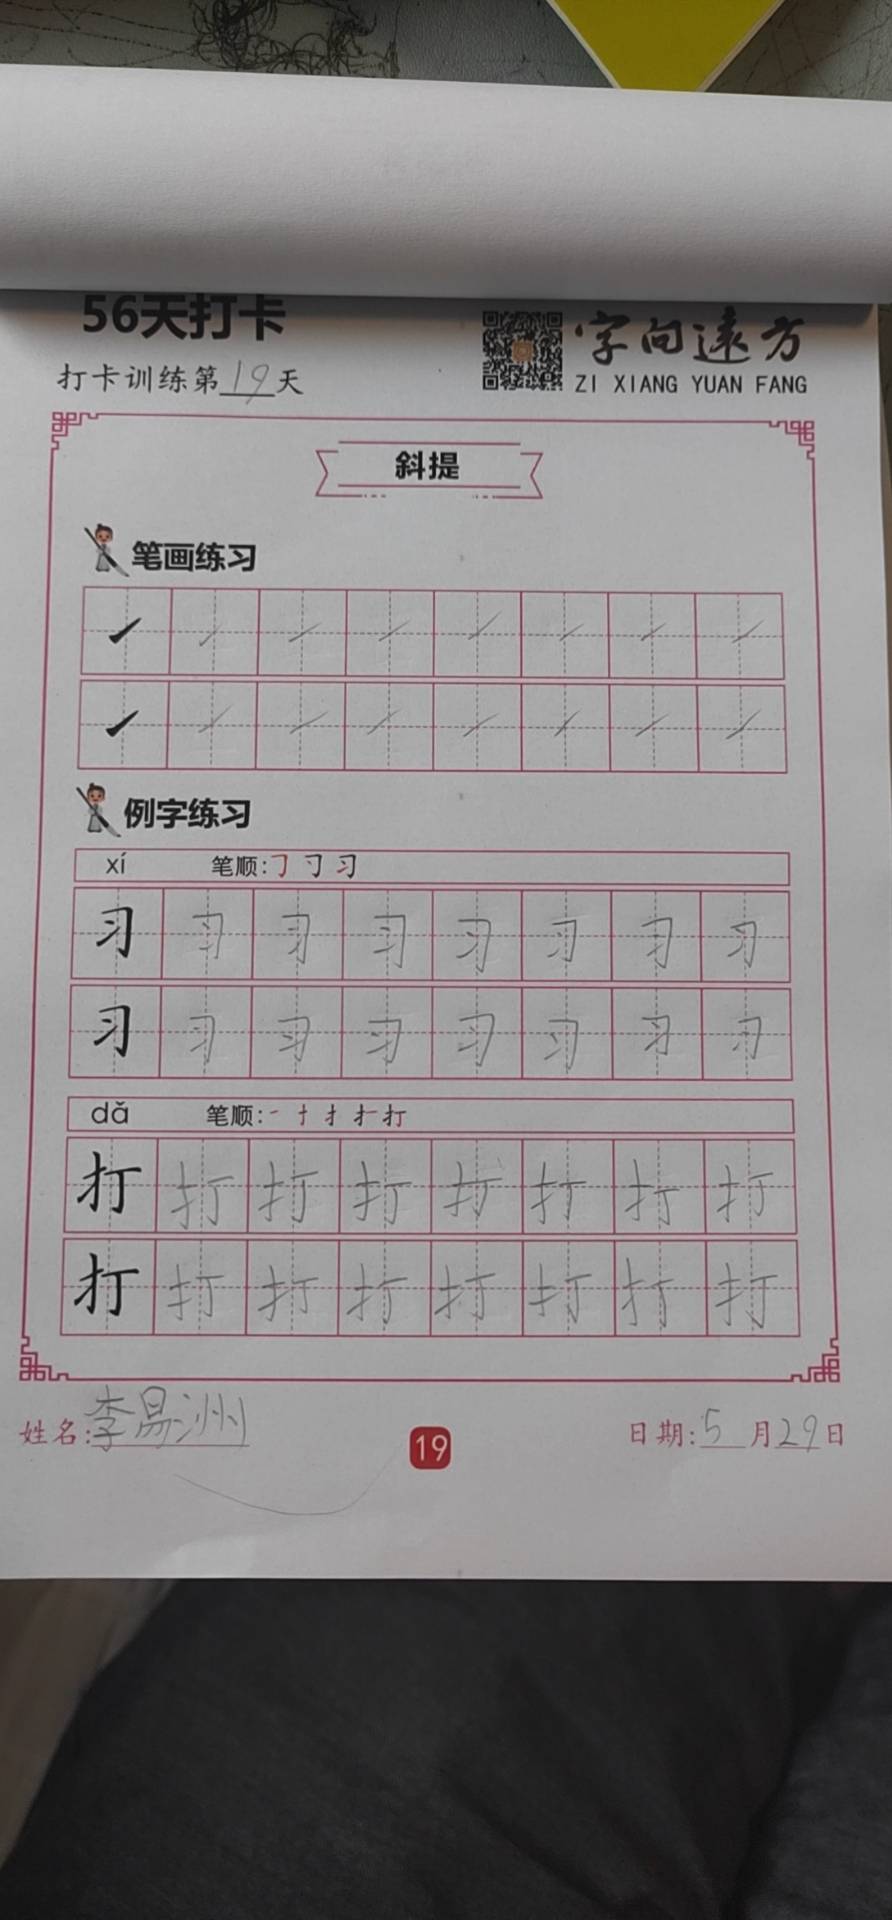 56天打卡
字向远方
打卡训练第19天
ZI XIANG YUAN FANG
斜提
笔画练习
例字练习
xí 笔顺:
习 习 习 习 习 习 习 习
习 习 习 习 习 习 习 习
dǎ 笔顺:
打 打 打 打 打 打 打 打
打 打 打 打 打 打 打 打
姓名:李易洲
19
日期:5月29日